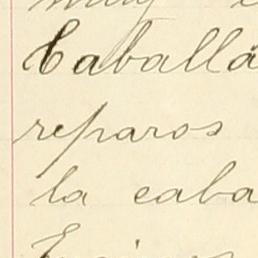 muy
Caballa
reparos
la caba